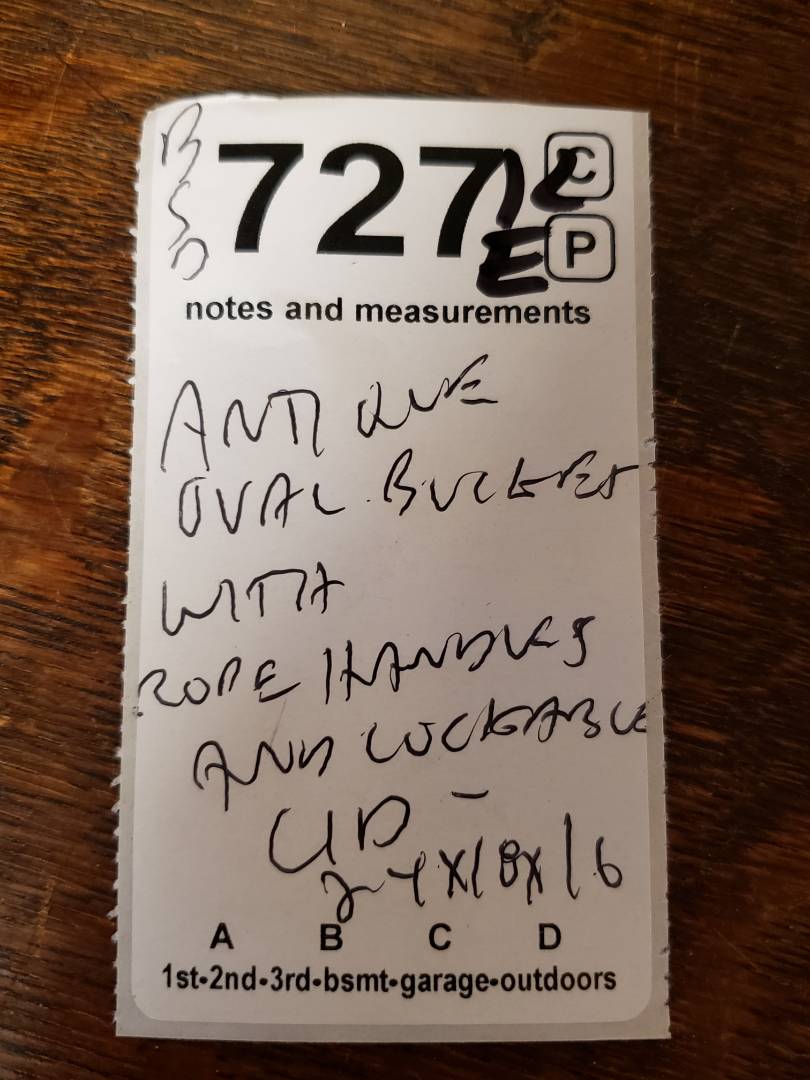 BSD
727
C
P
E
notes and measurements
ANTIQUE
OVAL BUCKET
WITH
ROPE HANDLES
AND LOCKABLE
LID -
24X18X16
A B C D
1st•2nd•3rd•bsmt•garage•outdoors